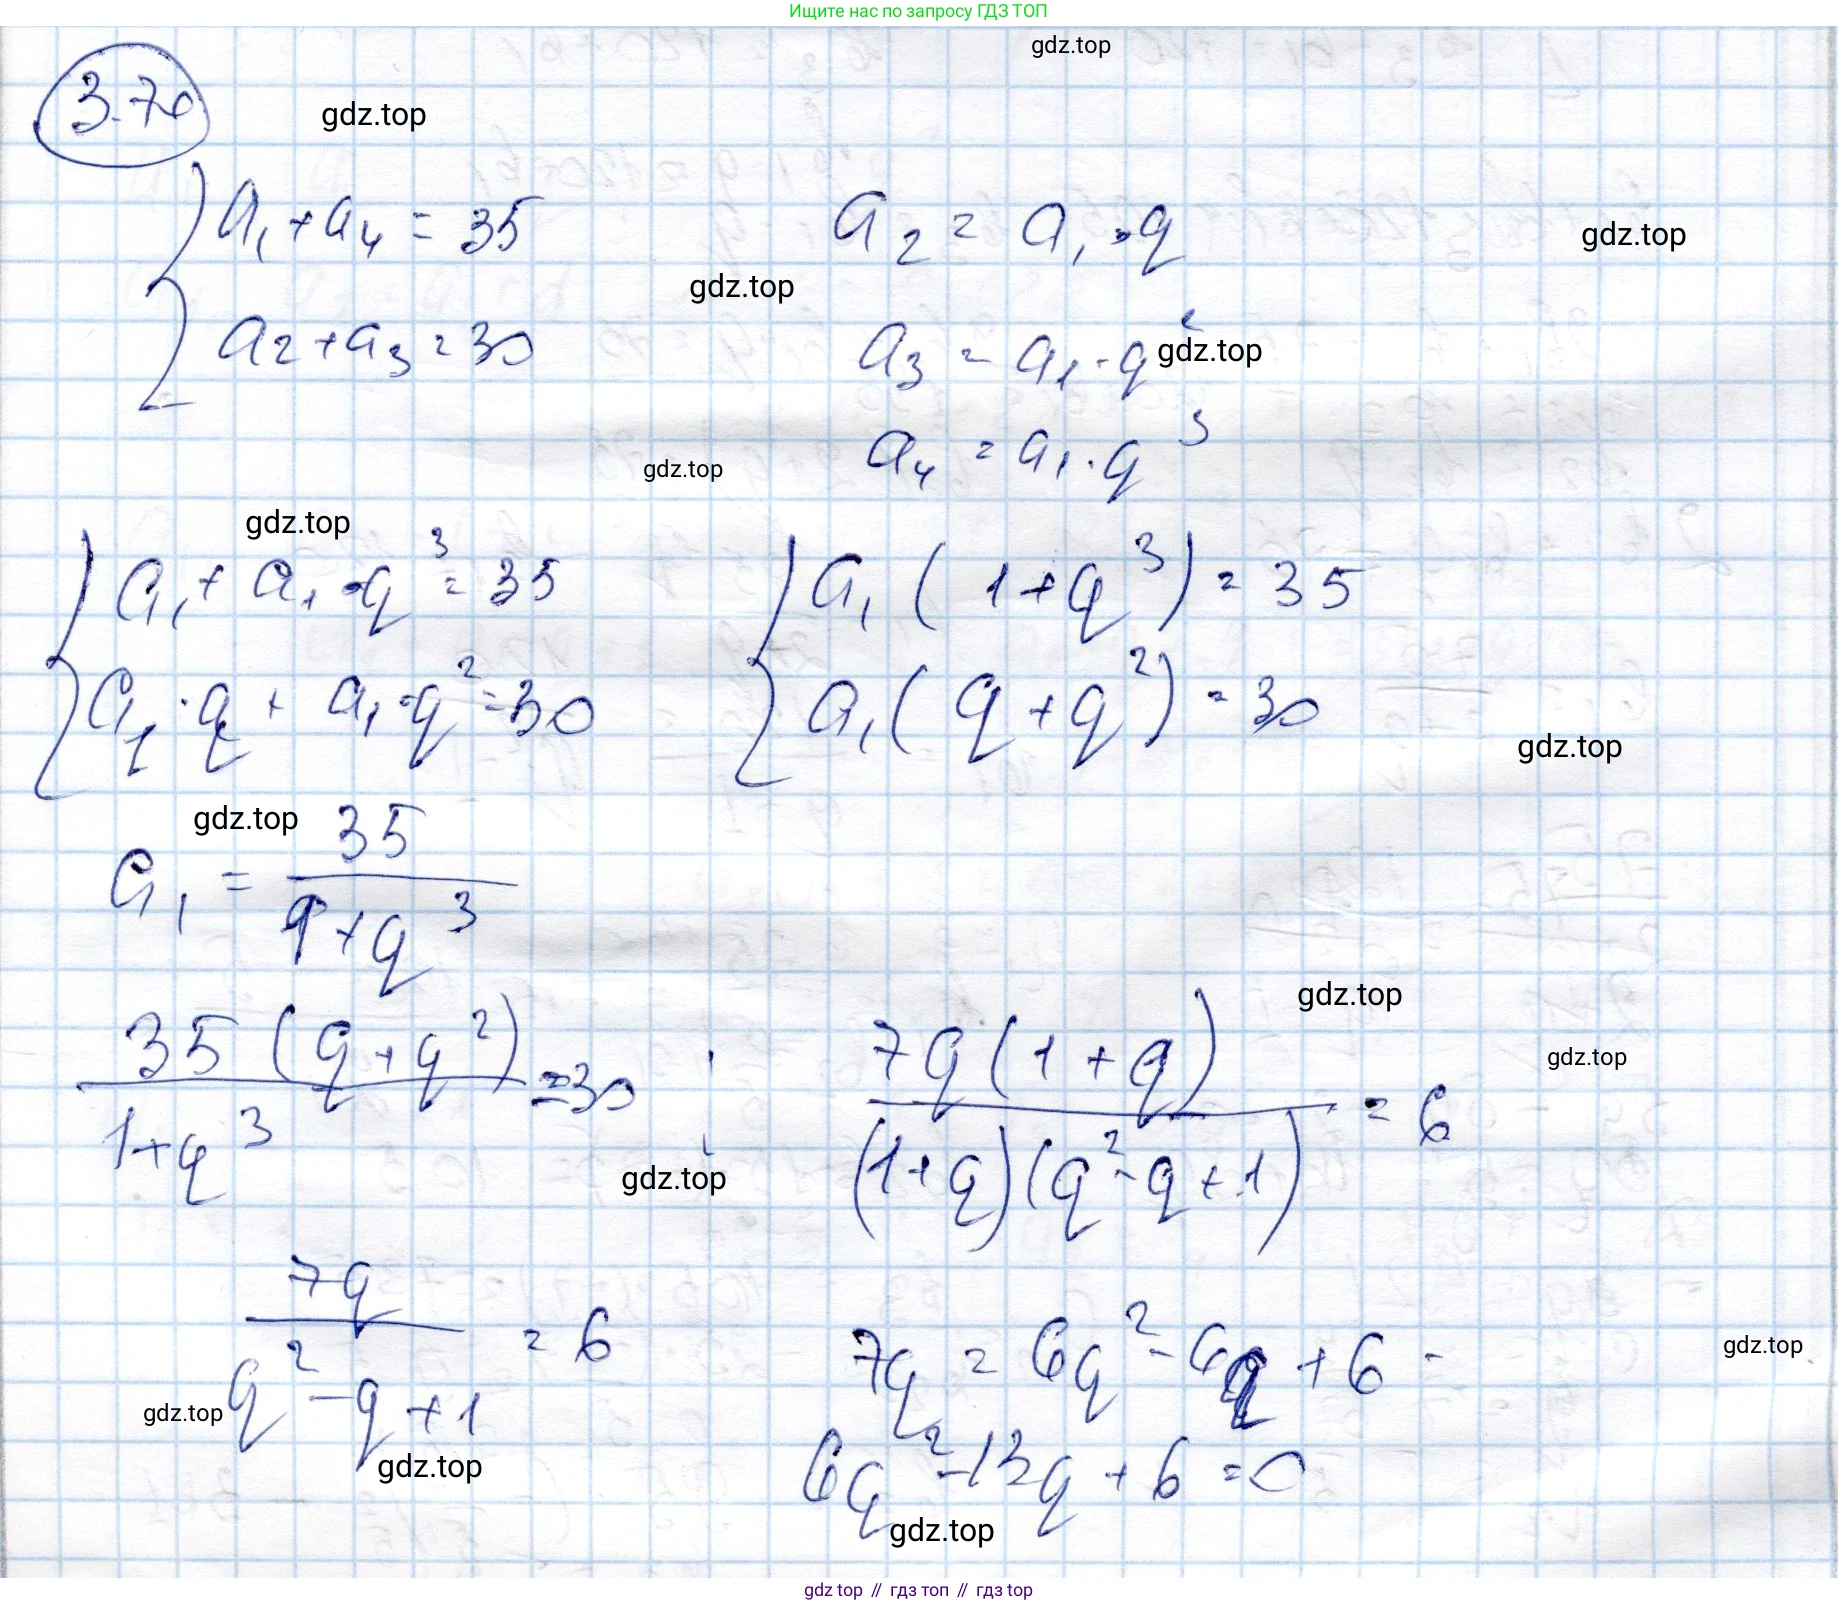 Ищите нас по запросу ГДЗ ТОП
gdz.top
3.70
gdz.top
a₁ + a₄ = 35
a₂ = a₁ · q
gdz.top
gdz.top
a₂ + a₃ = 30
a₃ = a₁ · q²
gdz.top
a₄ = a₁ · q³
gdz.top
gdz.top
a₁ + a₁ · q³ = 35
a₁ (1 + q³) = 35
a₁ · q + a₁ · q² = 30
a₁ (q + q²) = 30
gdz.top
gdz.top
a₁ = 35 / 1 + q³
gdz.top
35 (q + q²) / 1 + q³ = 30 ;
7q (1 + q) / (1 + q)(q² - q + 1) = 6
gdz.top
gdz.top
7q / q² - q + 1 = 6
7q = 6q² - 6q + 6 -
gdz.top
gdz.top
gdz.top
6q² - 13q + 6 = 0
gdz.top
gdz top // гдз топ // gdz top